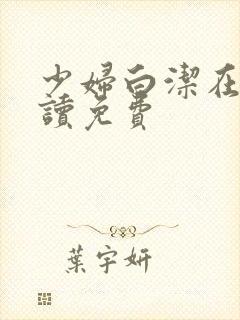 少婦白潔在
讀免費
葉宇妍